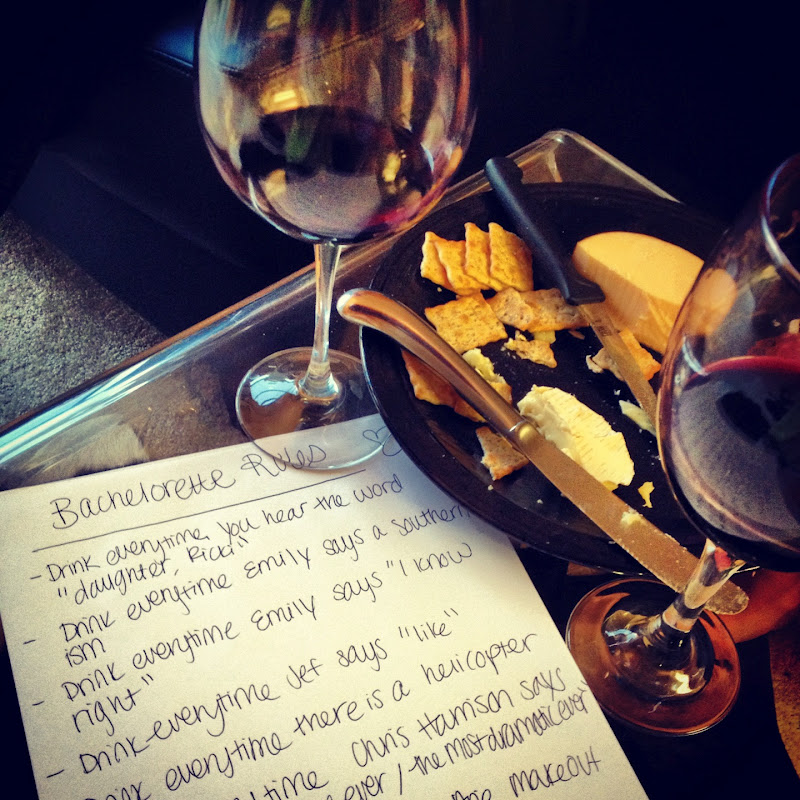 Bachelorette Rules ♡
- Drink everytime you hear the word
"daughter, Ricki"
- Drink everytime Emily says a southern
ism
- Drink everytime Emily says "I know
right"
- Drink everytime Jef says "like"
Drink everytime there is a helicopter
time Chris Harrison says
ever / the most dramatic ever"
makeout